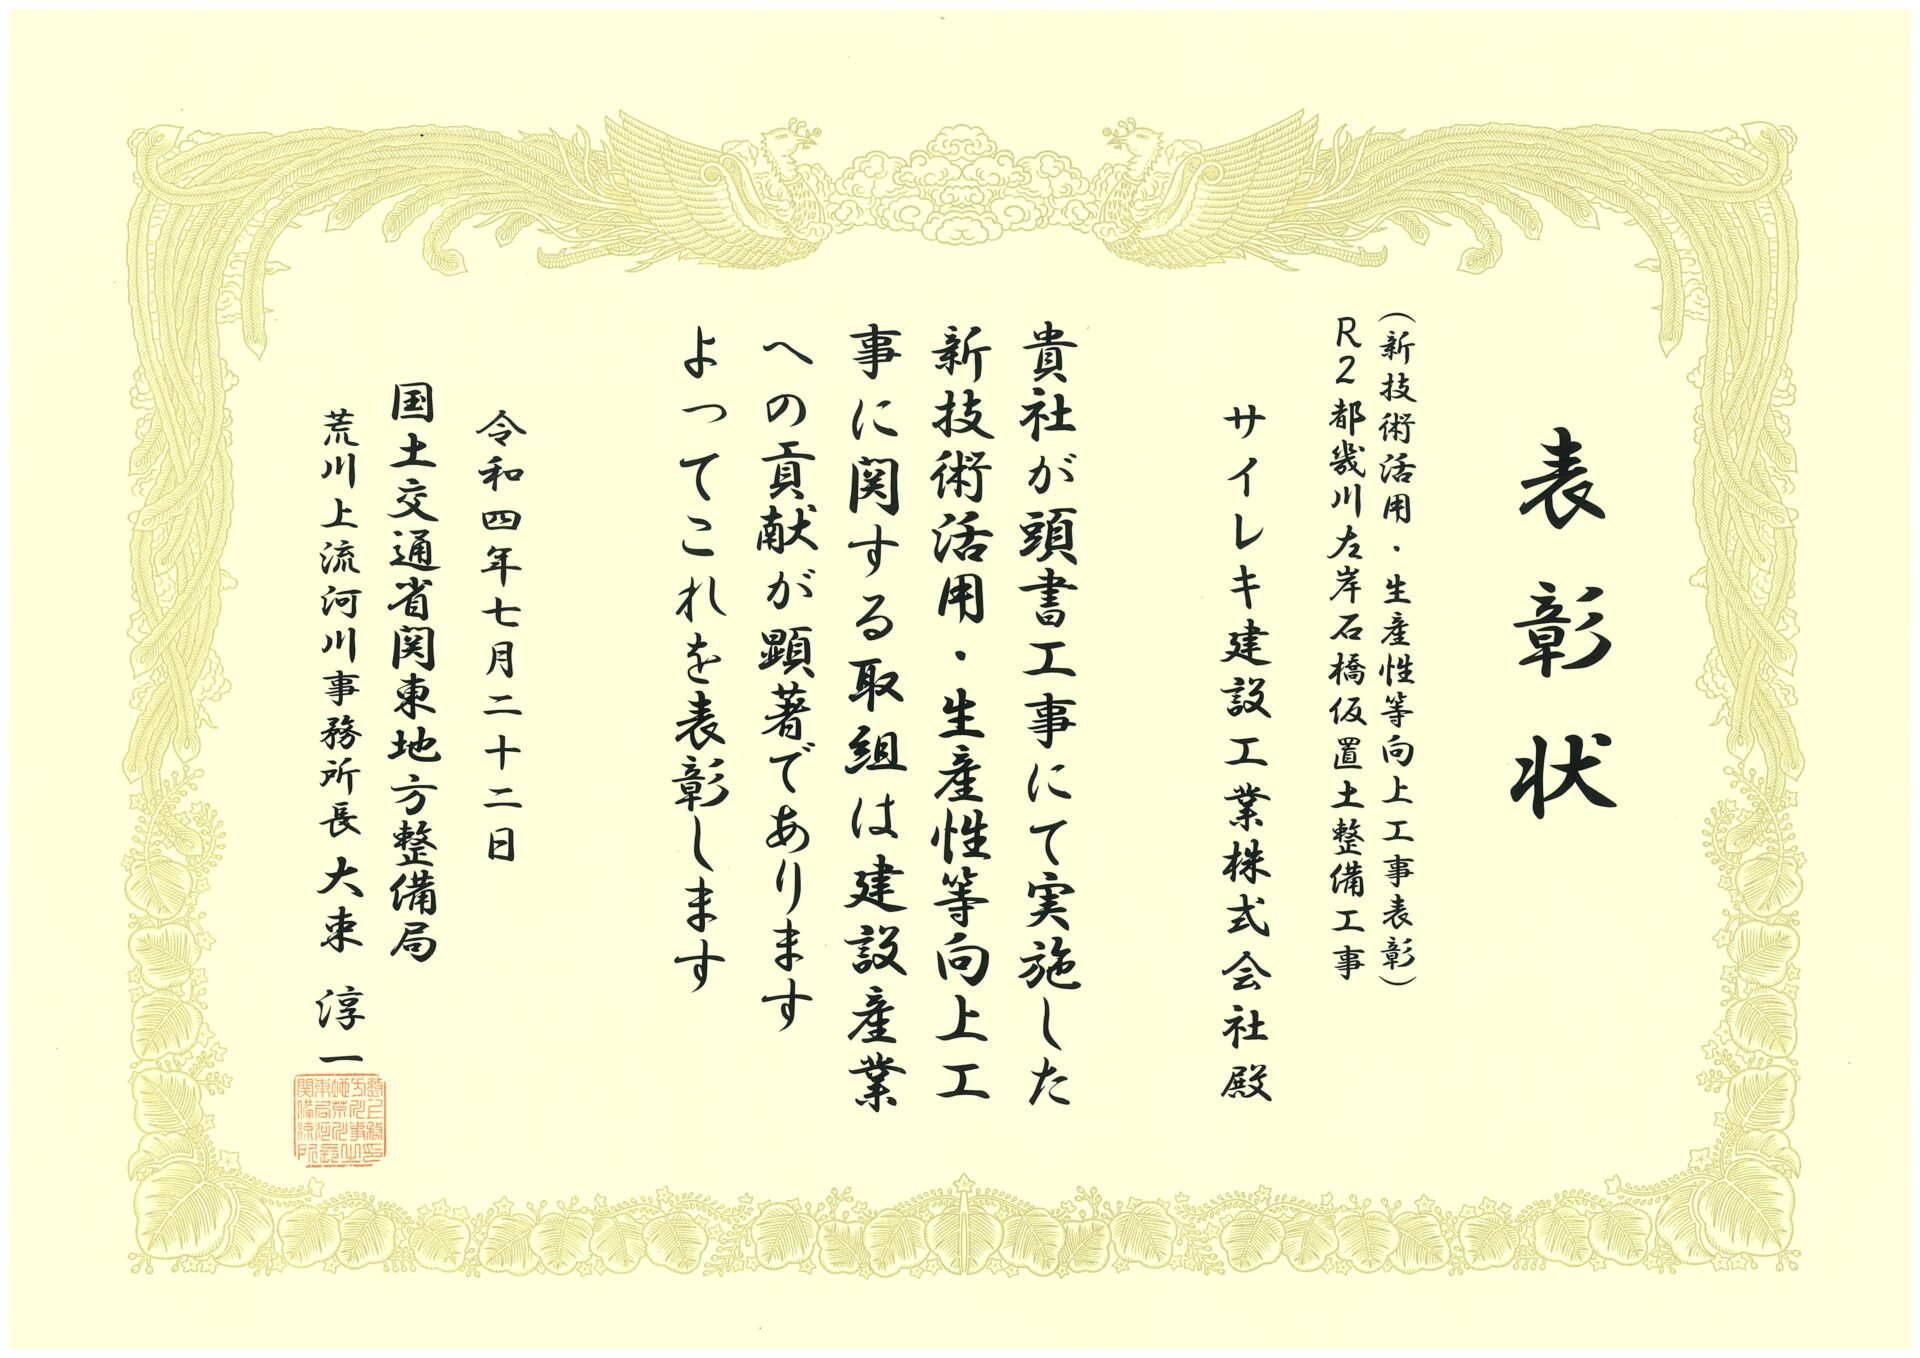 表彰状
(新技術活用・生産性等向上工事表彰)
R2都幾川左岸石橋仮置土整備工事
サイレキ建設工業株式会社殿
貴社が頭書工事にて実施した
新技術活用・生産性等向上工
事に関する取組は建設産業
への貢献が顕著であります
よってこれを表彰します
令和四年七月二十二日
国土交通省関東地方整備局
荒川上流河川事務所長 大束 淳一